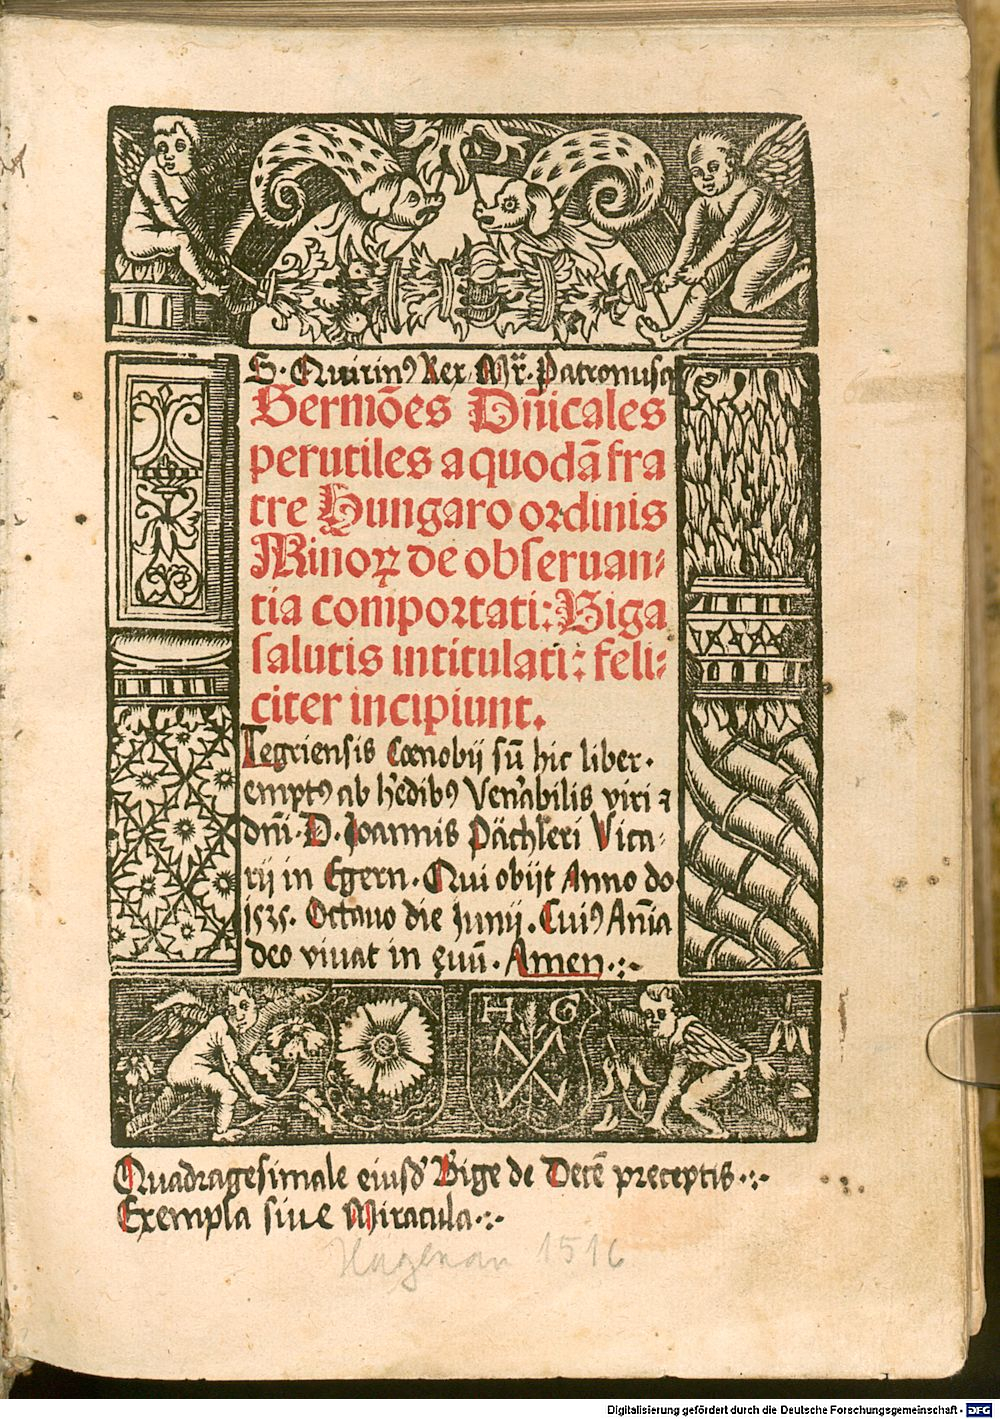 S. Quirin⁹ Rex Mr̃. Patronusq̃
Sermões Dñicales
perutiles a quodã fra
tre Hungaro ordinis
Minoꝝ de obseruan⸗
tia comportati: Biga
salutis intitulati: feli⸗
citer incipiunt.
Tegriensis Cœnobij sũ hic liber.
empt⁹ ab he͛dib⁹ Ven͛abilis viri ⁊
dñi. D. Joannis Pächleri Vica⸗
rij in Egern. Qui obijt Anno do
1525. Octauo die Junij. Cui⁹ Añia
deo viuat in ęuũ. Amen.:.
H G
Quadragesimale eiusd̕ Bige de Decẽ preceptis.:.
Exempla siue Miracula.:.
Hagenau 1516
Digitalisierung gefördert durch die Deutsche Forschungsgemeinschaft - DFG